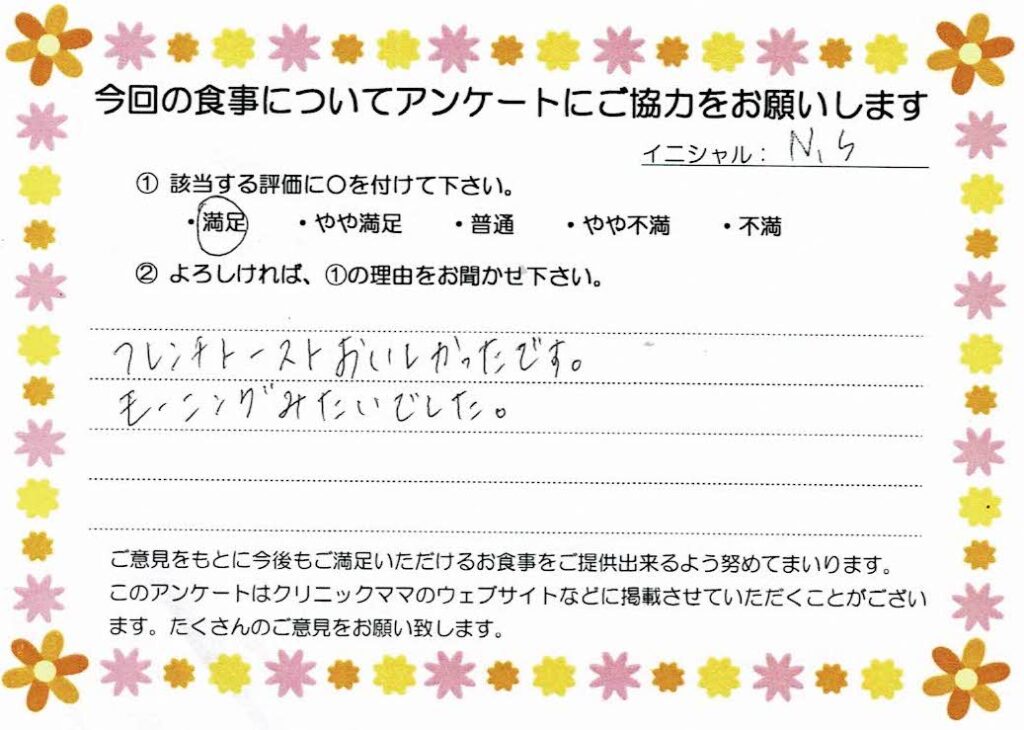 今回の食事についてアンケートにご協力をお願いします
イニシャル： N,S
① 該当する評価に〇を付けて下さい。
・満足 ・やや満足 ・普通 ・やや不満 ・不満
② よろしければ、①の理由をお聞かせ下さい。
フレンチトーストおいしかったです。
モーニングみたいでした。
ご意見をもとに今後もご満足いただけるお食事をご提供出来るよう努めてまいります。
このアンケートはクリニックママのウェブサイトなどに掲載させていただくことがござい
ます。たくさんのご意見をお願い致します。